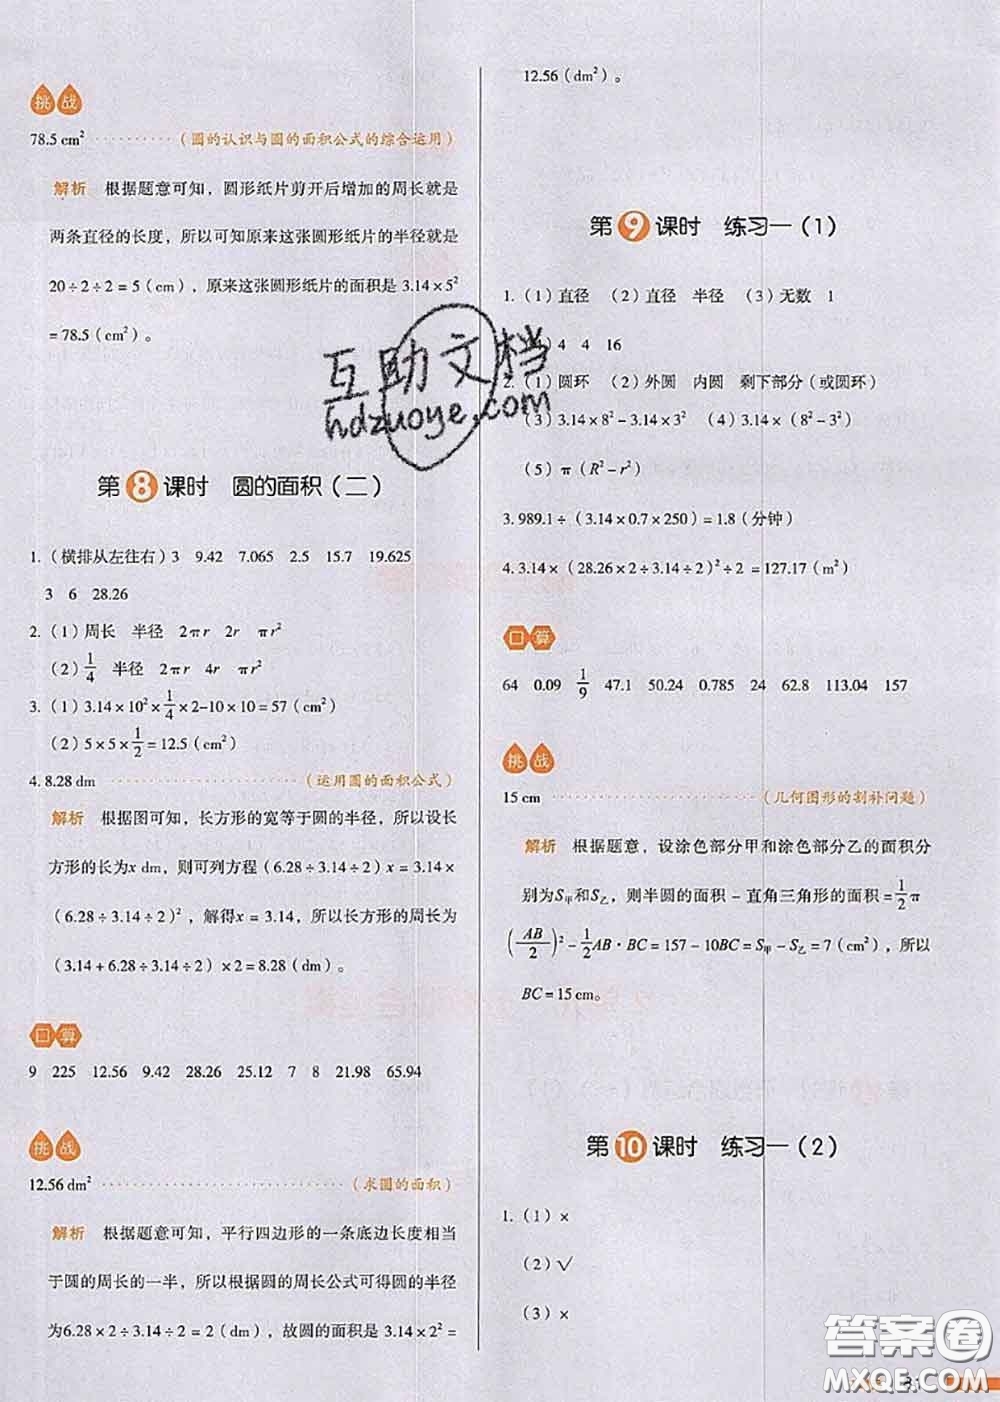 挑战
78.5 cm² ··········· （圆的认识与圆的面积公式的综合运用）
解析 根据题意可知，圆形纸片剪开后增加的周长就是
两条直径的长度，所以可知原来这张圆形纸片的半径就是
20÷2÷2=5（cm），原来这张圆形纸片的面积是 3.14×5²
=78.5（cm²）。
第8课时 圆的面积（二）
1.（横排从左往右）3 9.42 7.065 2.5 15.7 19.625
3 6 28.26
2.（1）周长 半径 2πr 2r πr²
（2）1/4 半径 2πr 4r πr²
3.（1）3.14×10²×1/4×2-10×10=57（cm²）
（2）5×5×1/2=12.5（cm²）
4. 8.28 dm ··········· （运用圆的面积公式）
解析 根据图可知，长方形的宽等于圆的半径，所以设长
方形的长为x dm，则可列方程（6.28÷3.14÷2）x=
（6.28÷3.14÷2）²，解得x=3.14，所以长方形的周长为
（3.14+6.28÷3.14÷2）×2=8.28（dm）。
口算
9 225 12.56 9.42 28.26 25.12 7 8 21.98 65.94
挑战
12.56 dm² ··········· （求圆的面积）
解析 根据题意可知，平行四边形的一条底边长度相当
于圆的周长的一半，所以根据圆的周长公式可得圆的半径
为6.28×2÷3.14÷2=2（dm），故圆的面积是 3.14×2²=
12.56（dm²）。
第9课时 练习一（1）
1.（1）直径 （2）直径 半径 （3）无数 1
4 4 16
2.（1）圆环 （2）外圆 内圆 剩下部分（或圆环）
（3）3.14×8²-3.14×3² （4）3.14×（8²-3²）
（5）π（R²-r²）
3. 989.1÷（3.14×0.7×250）=1.8（分钟）
4. 3.14×（28.26×2÷3.14÷2）²÷2=127.17（m²）
口算
64 0.09 1/9 47.1 50.24 0.785 24 62.8 113.04 157
挑战
15 cm ··········· （几何图形的割补问题）
解析 根据题意，设涂色部分甲和涂色部分乙的面积分
别为S甲和S乙，则半圆的面积-直角三角形的面积=1/2π
(AB/2)²-1/2AB·BC=157-10BC=S甲-S乙=7（cm²），所以
BC=15 cm。
第10课时 练习一（2）
1.（1）×
（2）√
（3）×
互助文档
hdzuoye.com
答案圈
MXQE.COM